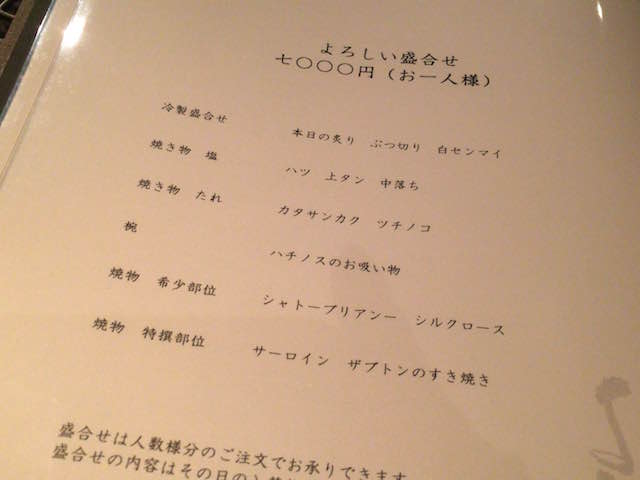 よろしい盛合せ
七〇〇〇円（お一人様）
冷製盛合せ　本日の炙り　ぶつ切り　白センマイ
焼き物　塩　ハツ　上タン　中落ち
焼き物　たれ　カタサンカク　ツチノコ
椀　ハチノスのお吸い物
焼物　希少部位　シャトーブリアンー　シルクロース
焼物　特撰部位　サーロイン　ザブトンのすき焼き
盛合せは人数様分のご注文でお承りできます
盛合せの内容はその日の